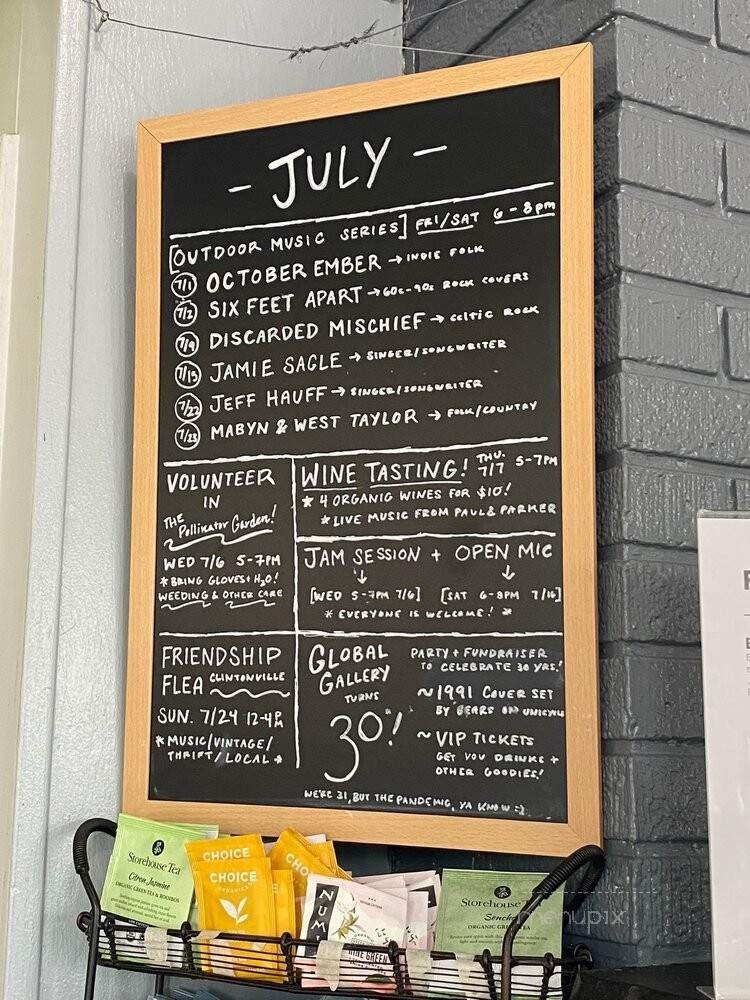 - JULY -
[OUTDOOR MUSIC SERIES] FRI/SAT 6-8pm
7/1 OCTOBER EMBER → INDIE FOLK
7/2 SIX FEET APART → 60s-90s ROCK COVERS
7/9 DISCARDED MISCHIEF → CELTIC ROCK
7/15 JAMIE SAGLE → SINGER/SONGWRITER
7/22 JEFF HAUFF → SINGER/SONGWRITER
7/23 MABYN & WEST TAYLOR → FOLK/COUNTRY
VOLUNTEER
IN
THE
Pollinator Garden!
WED 7/6 5-7PM
*BRING GLOVES + H2O!
WEEDING & OTHER CARE
WINE TASTING! THU. 7/7 5-7PM
* 4 ORGANIC WINES FOR $10!
* LIVE MUSIC FROM PAUL & PARKER
JAM SESSION + OPEN MIC
↓ ↓
[WED 5-7PM 7/6] [SAT 6-8PM 7/16]
* EVERYONE IS WELCOME! *
FRIENDSHIP
FLEA CLINTONVILLE
SUN. 7/24 12-4PM
*MUSIC/VINTAGE/
THRIFT/LOCAL*
GLOBAL
GALLERY
TURNS
30!
PARTY + FUNDRAISER
TO CELEBRATE 30 YRS!
~1991 COVER SET
BY BEARS ON UNICYCLE
~ VIP TICKETS
GET YOU DRINKS +
OTHER GOODIES!
WE'RE 31, BUT THE PANDEMIC, YA KNOW :)
Storehouse Tea
Citron Jasmine
ORGANIC GREEN TEA & ROOIBOS
CHOICE
CHOICE
ORGANICS
CHO
NUM
GREEN
Storehouse Tea
Sencha
ORGANIC GREEN TEA